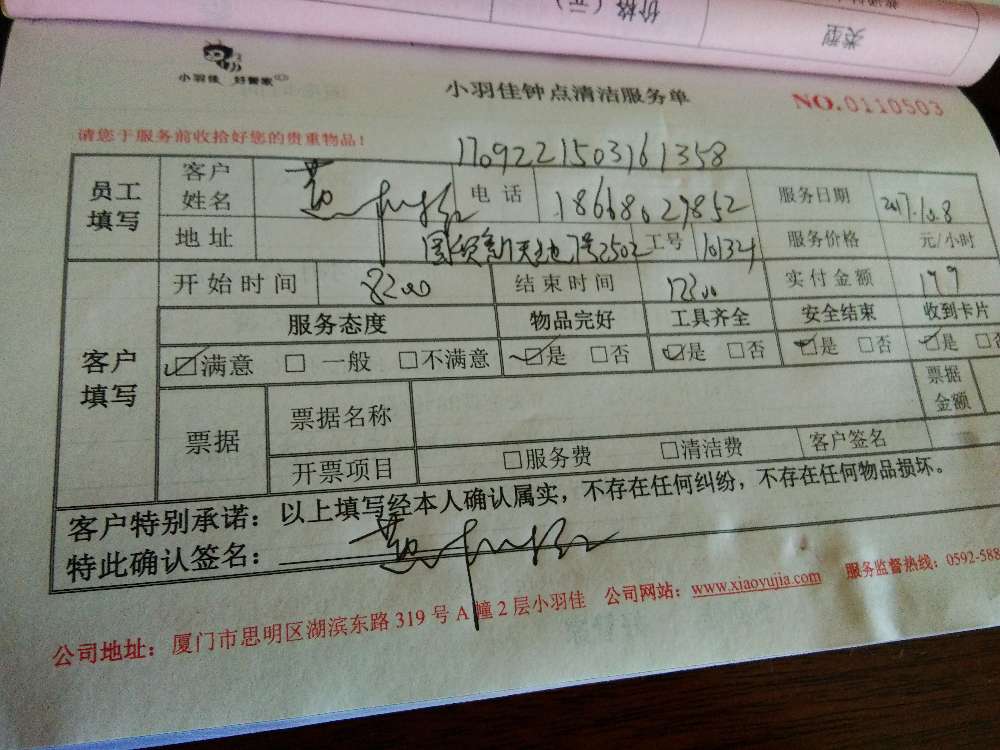 价格(元)
类型
小羽佳 好管家
小羽佳钟点清洁服务单
NO.0110503
请您于服务前收拾好您的贵重物品!
1709221503161358
员工填写
客户姓名
电话 18668029852
服务日期 2017.10.8
地址 国贸新天地7号2502
工号 101324
服务价格 元/小时
客户填写
开始时间 8:00
结束时间 12:00
实付金额 199
服务态度 物品完好 工具齐全 安全结束 收到卡片
☑满意 □一般 □不满意 ☑是 □否 ☑是 □否 ☑是 □否 ☑是 □否
票据
票据名称
票据金额
开票项目 □服务费 □清洁费 客户签名
客户特别承诺:以上填写经本人确认属实,不存在任何纠纷,不存在任何物品损坏。
特此确认签名:
公司地址:厦门市思明区湖滨东路 319 号 A 幢 2 层小羽佳 公司网站:www.xiaoyujia.com 服务监督热线:0592-588